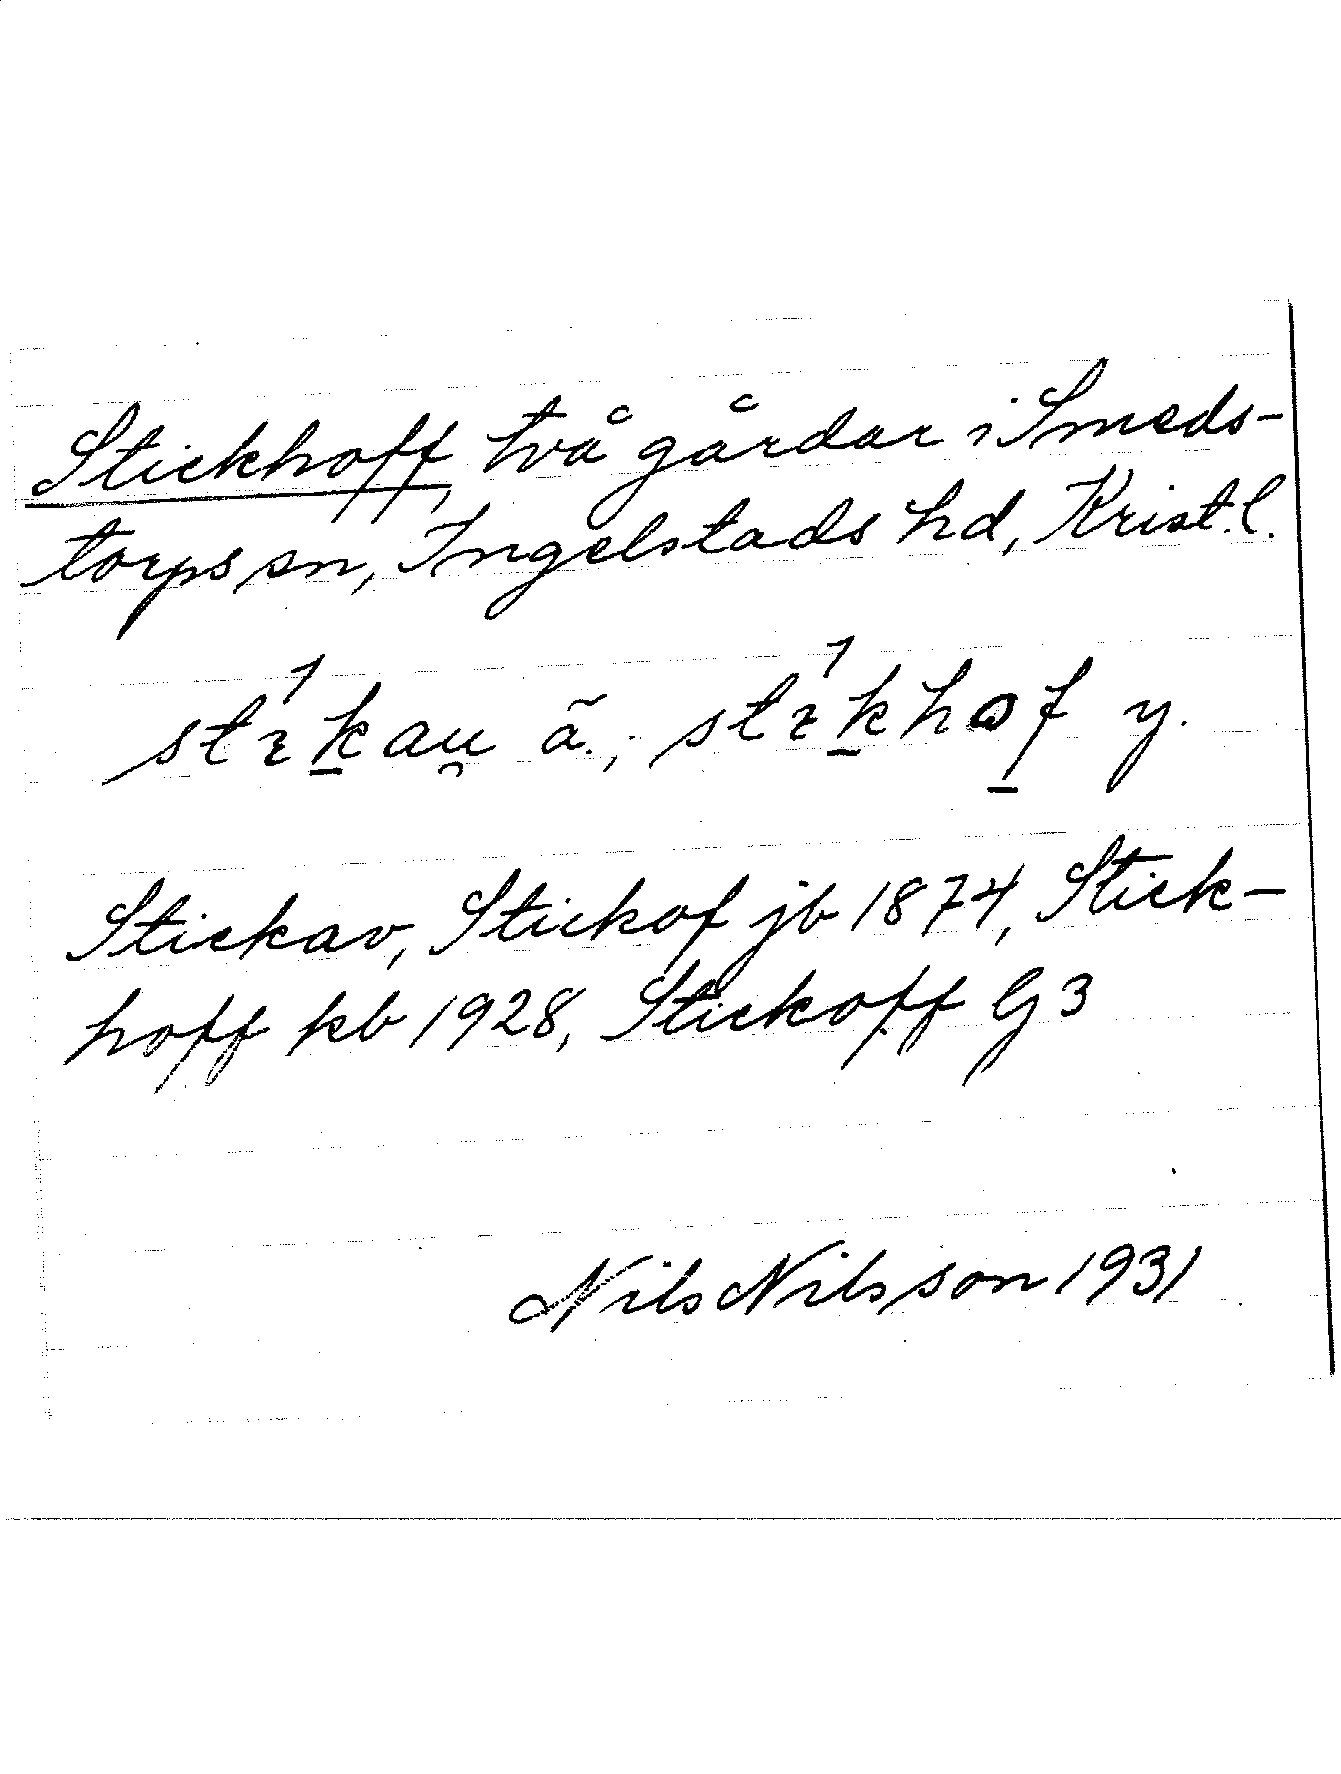 Stickhoff, två gårdar i Smeds-
torps sn, Ingelstads hd, Krist.l.
stɪ́k̲au̯ ã.; stɪ́k̲hof̲ y.
Stickav, Stickof jb 1874, Stick-
hoff kb 1928, Stickoff G 3
Nils Nilsson 1931